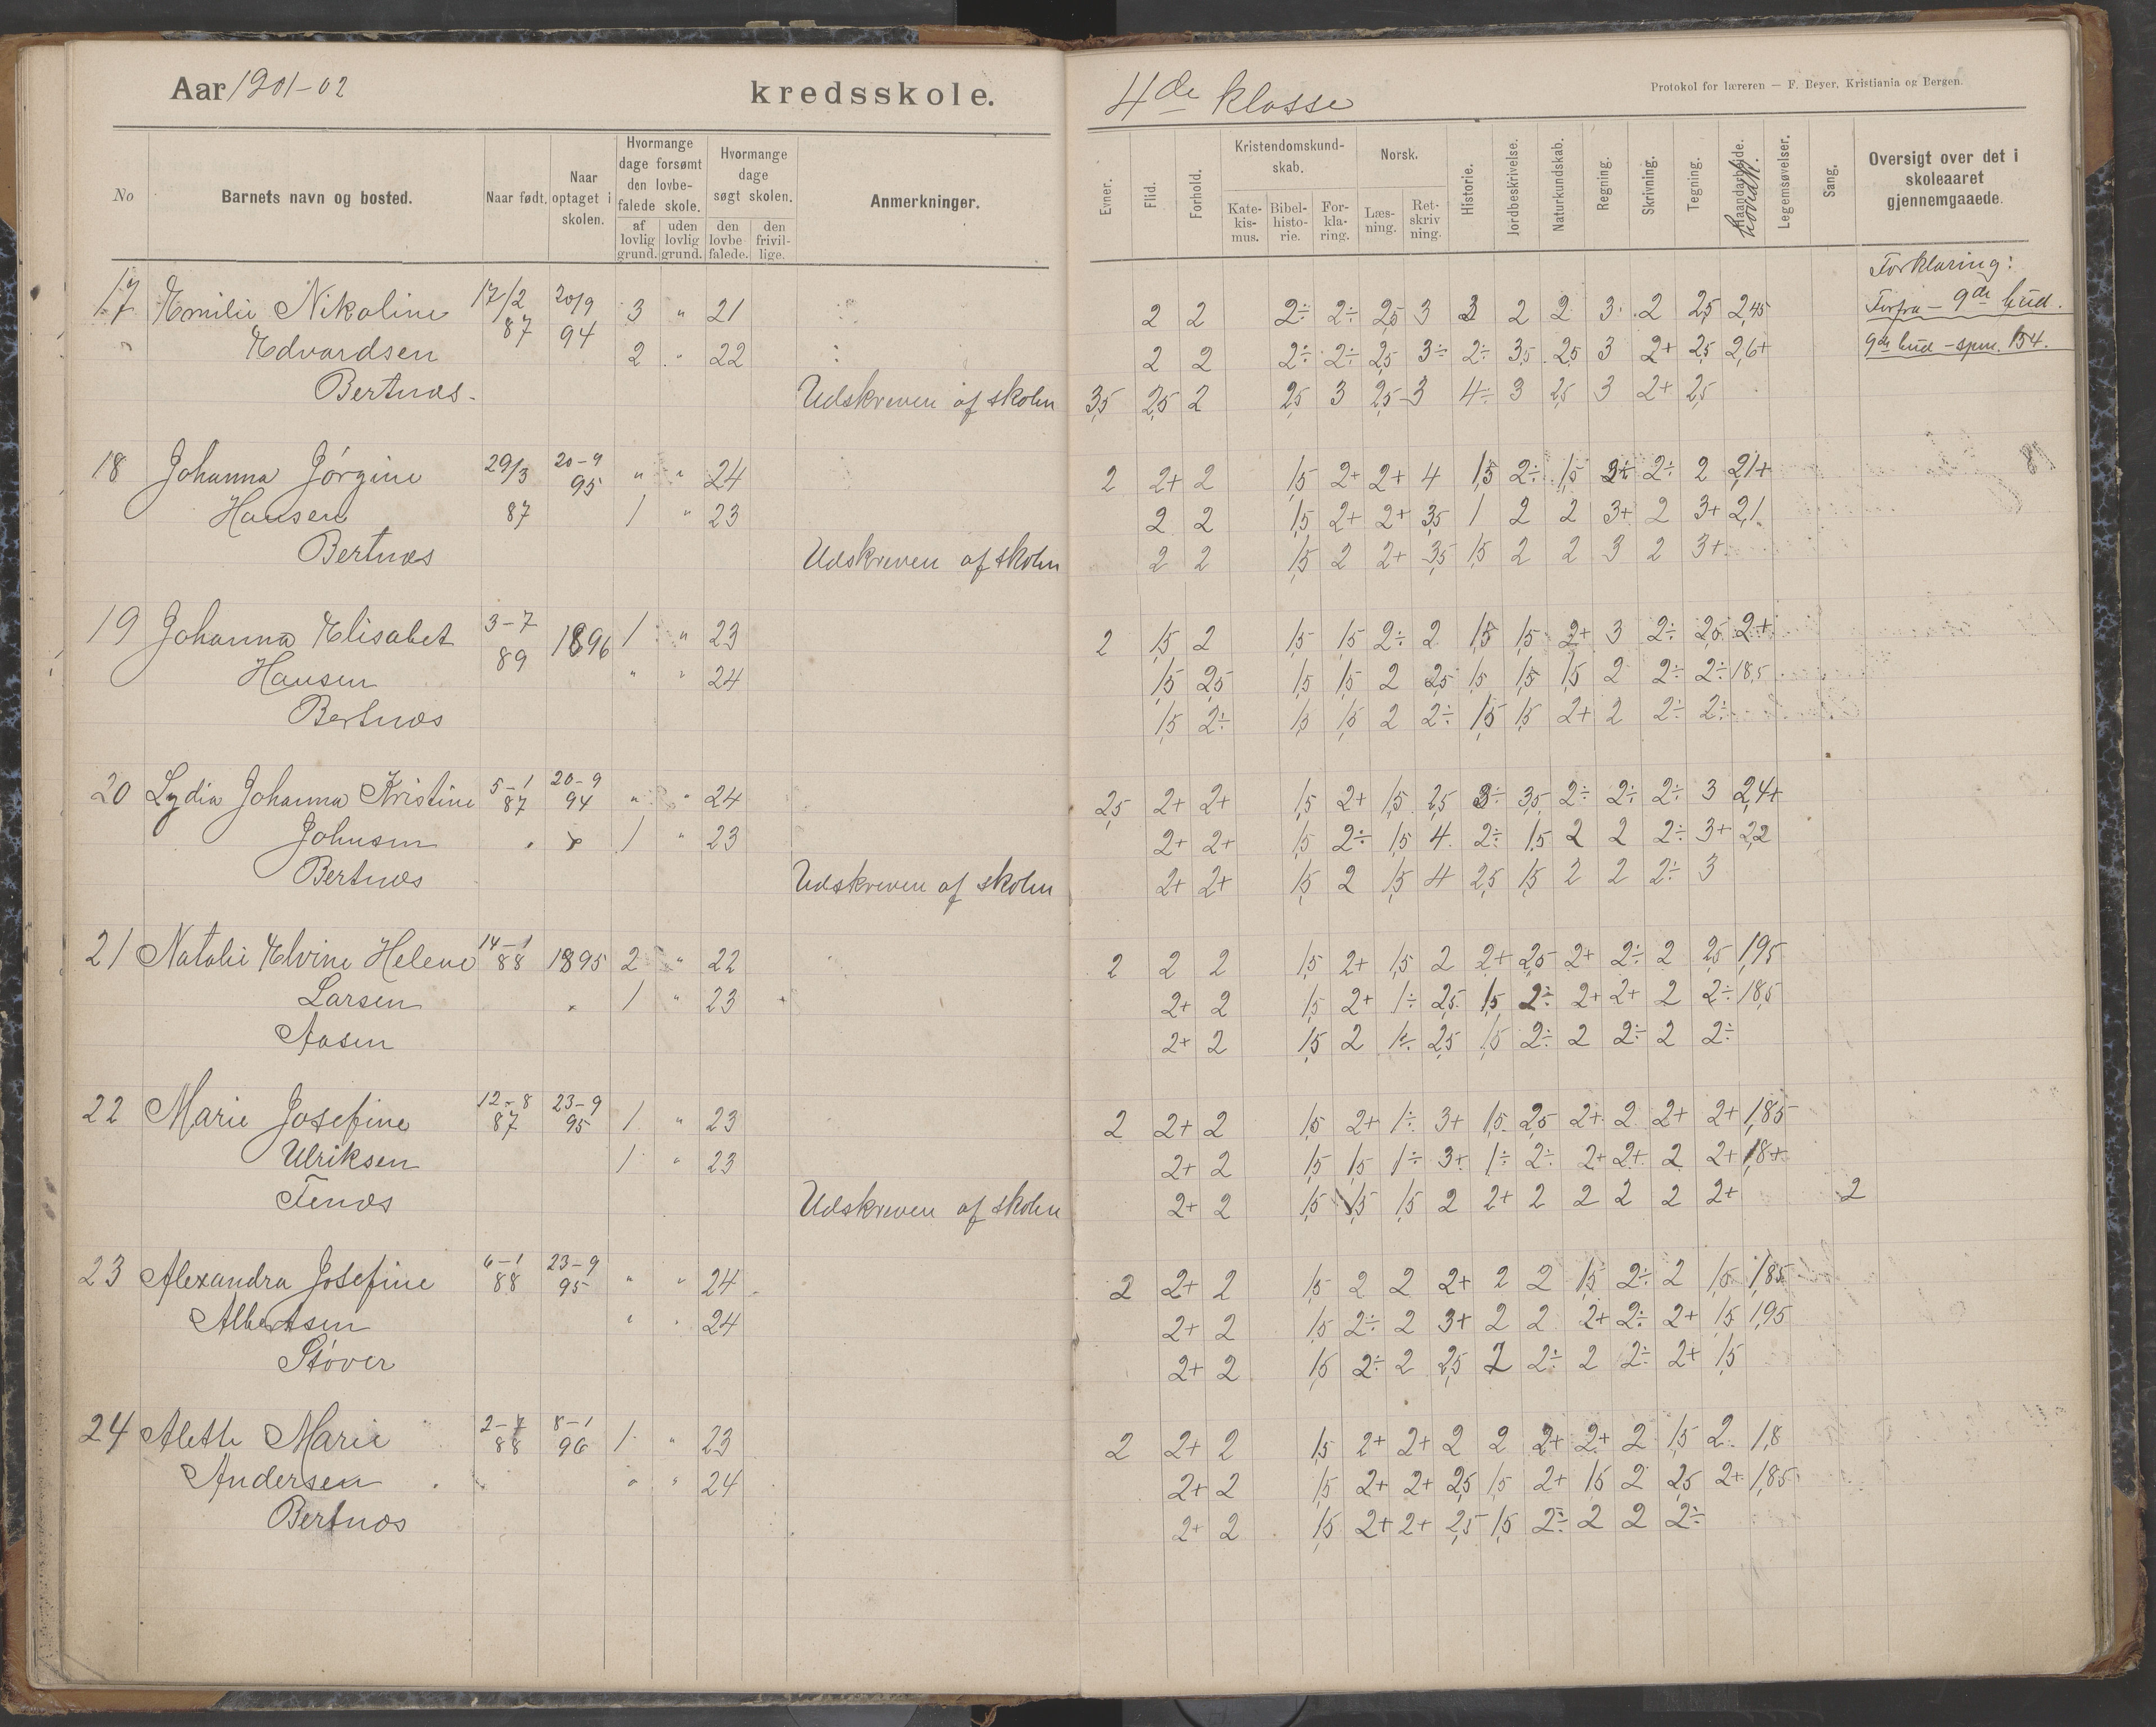 Aar 1901-02 kredsskole.
4de klasse
Protokol for læreren — F. Beyer, Kristiania og Bergen.
No
Barnets navn og bosted.
Naar født.
Naar optaget i skolen.
Hvormange dage forsømt den lovbefalede skole.
af lovlig grund.
uden lovlig grund.
Hvormange dage søgt skolen.
den lovbefalede.
den frivillige.
Anmerkninger.
Evner.
Flid.
Forhold.
Kristendomskundskab.
Katekismus.
Bibelhistorie.
Forklaring.
Norsk.
Læsning.
Retskrivning.
Historie.
Jordbeskrivelse.
Naturkundskab.
Regning.
Skrivning.
Tegning.
Haandarbeide.
Legemsøvelser.
Sang.
Oversigt over det i skoleaaret gjennemgaaede.
Forklaring:
Forfra - 9de bud.
9de bud - spm. 154.
17 Emilie Nikoline 17/2 20/9 3 " 21 2 2 2÷ 2÷ 2,5 3 3 2 2 3 2 2,5 2,45
Edvardsen 87 94 2 " 22 2 2 2÷ 2÷ 2,5 3÷ 2÷ 3,5 2,5 3 2+ 2,5 2,6+
Bertnæs. Udskreven af skolen 3,5 2,5 2 2,5 3 2,5 3 4÷ 3 2,5 3 2+ 2,5
18 Johanna Jørgine 29/3 20-9 95 " " 24 2 2+ 2 1,5 2+ 2+ 4 1,5 2÷ 1,5 3+ 2÷ 2 2,1+
Hansen 87 1 " 23 2 2 1,5 2+ 2+ 3,5 1 2 2 3+ 2 3+ 2,1
Bertnæs Udskreven af skolen 2 2 1,5 2 2+ 3,5 1,5 2 2 3 2 3+
19 Johanna Elisabet 3-7 1896 1 " 23 2 1,5 2 1,5 1,5 2÷ 2 1,5 1,5 2+ 3 2÷ 2,5 2+
Hansen 89 " " 24 1,5 2,5 1,5 1,5 2 2,5 1,5 1,5 1,5 2 2÷ 2÷ 1,8,5
Bertnæs 1,5 2÷ 1,5 1,5 2 2÷ 1,5 1,5 2+ 2 2÷ 2÷
20 Lydia Johanna Kristine 5-1 87 20-9 94 " " 24 2,5 2+ 2+ 1,5 2+ 1,5 2,5 3÷ 3,5 2÷ 2÷ 2÷ 3 2,4+
Johnsen 1 " 23 2+ 2+ 1,5 2÷ 1,5 4 2÷ 1,5 2 2 2÷ 3+ 2,2
Bertnæs Udskreven af skolen 2+ 2+ 1,5 2 1,5 4 2,5 1,5 2 2 2÷ 3
21 Natalie Elvine Helene 14-1 88 1895 2 " 22 2 2 2 1,5 2+ 1,5 2 2+ 2,5 2+ 2÷ 2 2,5 1,95
Larsen 1 " 23 2+ 2 1,5 2+ 1÷ 2,5 1,5 2÷ 2+ 2+ 2 2÷ 1,85
Aasen 2+ 2 1,5 2 1÷ 2,5 1,5 2÷ 2 2÷ 2 2÷
22 Marie Josefine 12-8 87 23-9 95 1 " 23 2 2+ 2 1,5 2+ 1÷ 3+ 1,5 2,5 2+ 2 2+ 2+ 1,85
Ulriksen 1 " 23 2+ 2 1,5 1,5 1÷ 3+ 1÷ 2÷ 2+ 2+ 2 2+ 1,8+
Tenæs Udskreven af skolen 2+ 2 1,5 1,5 1,5 2 2+ 2 2 2 2 2+ 2
23 Alexandra Josefine 6-1 88 23-9 95 " " 24 2 2+ 2 1,5 2 2 2+ 2 2 1,5 2÷ 2 1,5 1,85
Albertsen " " 24 2+ 2 1,5 2÷ 2 3+ 2 2 2+ 2÷ 2+ 1,5 1,95
Støver 2+ 2 1,5 2÷ 2 2,5 2 2÷ 2 2÷ 2+ 1,5
24 Alette Marie 2-7 88 8-1 96 1 " 23 2 2+ 2 1,5 2+ 2+ 2 2 2+ 2+ 2 1,5 2 1,8
Andersen " " 24 2+ 2 1,5 2+ 2+ 2,5 1,5 2+ 1,5 2 2,5 2+ 1,85
Bertnæs 2+ 2 1,5 2+ 2+ 2,5 1,5 2÷ 2 2 2÷